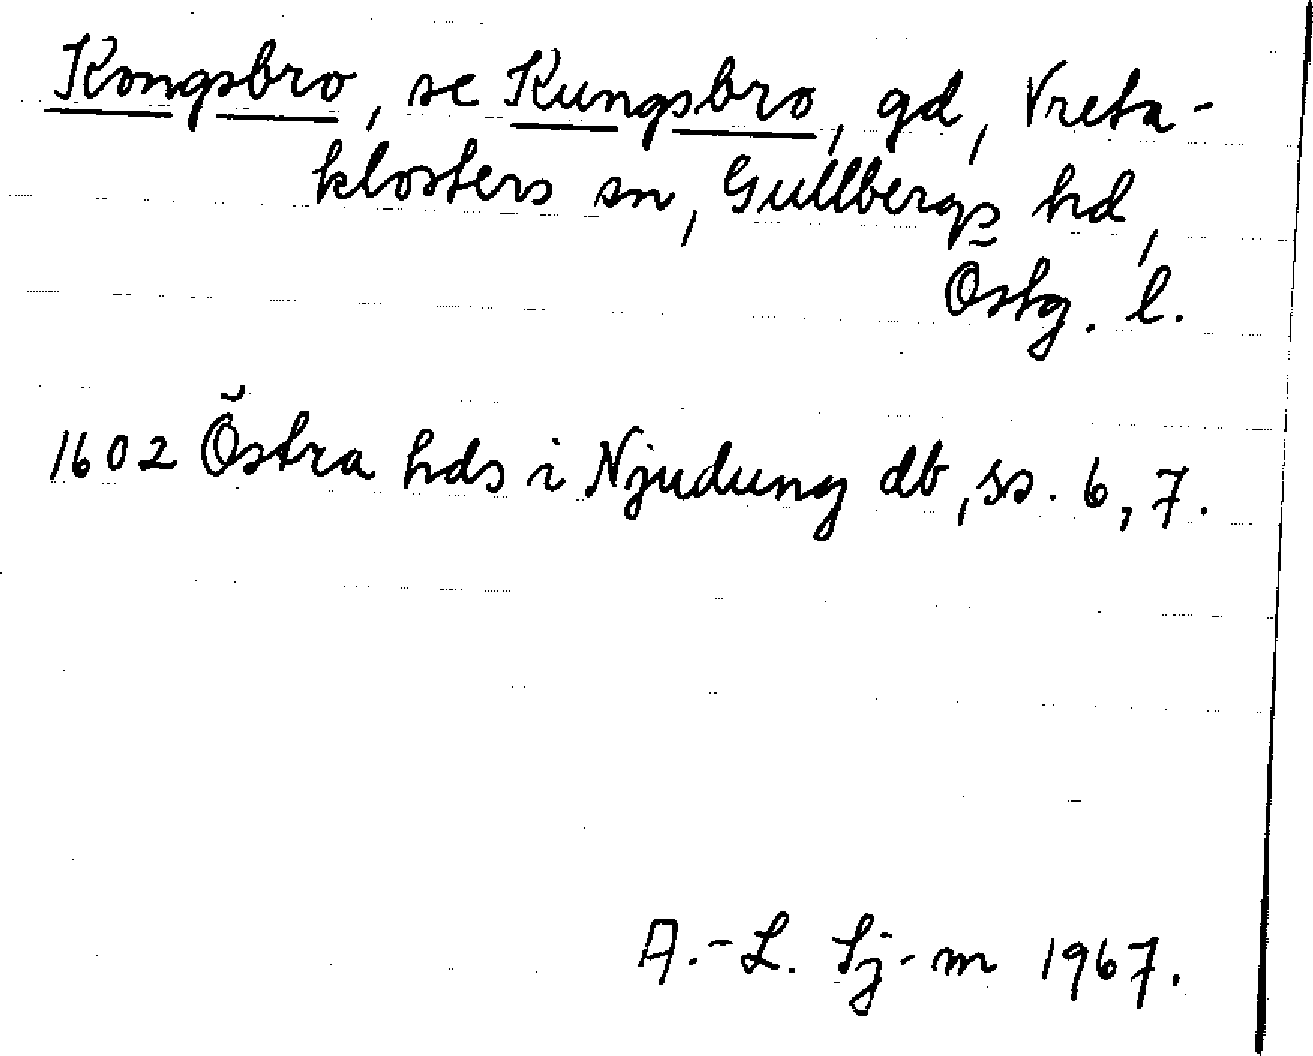 Kongsbro, se Kungsbro, gd, Vreta-
klosters sn, Gullbergs hd,
Östg. l.
1602 Östra hds i Njudung db, ss. 6, 7.
A.-L. Sj-m 1967.